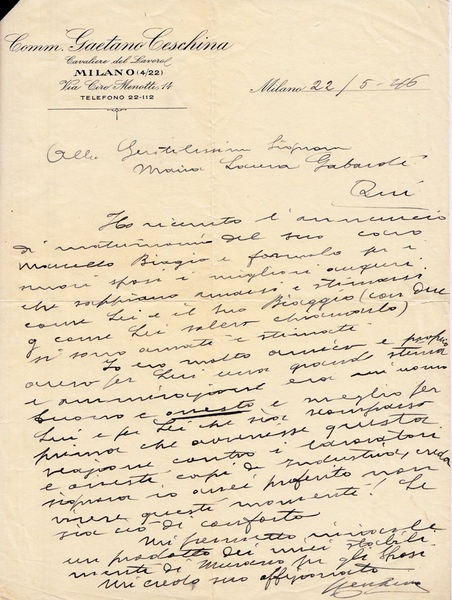 Comm. Gaetano Ceschina
Cavaliere del Lavoro
MILANO (4/22)
Via Ciro Menotti, 14
TELEFONO 22-112
Milano 22/5-46
Alla Gentilissima Signora
Maria Laura Gabardi
Qui
Ho ricevuto l'annuncio
di matrimonio del suo caro
Marcello Biagio e formulo per i
nuovi sposi i migliori auguri
che sappiano amarsi e stimarsi
come Lei e il suo Biaggio (con due
g come Lei soleva chiamarlo)
si sono amati e stimati
Io ero molto amico e proprio
avevo per Lui una grande stima
e ammirazione era un uomo
buono e onesto e meglio per
Lui e per Lei che sia scomparso
prima che avvenisse questa
contro i lavoratori
e onesti capi di industria, creda
signora io avrei preferito non
vivere questi momenti! Le
sia ciò di conforto
Mi permetto inviarle
un prodotto dei miei stabili
menti di Murano per gli Sposi
Mi creda suo affezionato
Ceschina